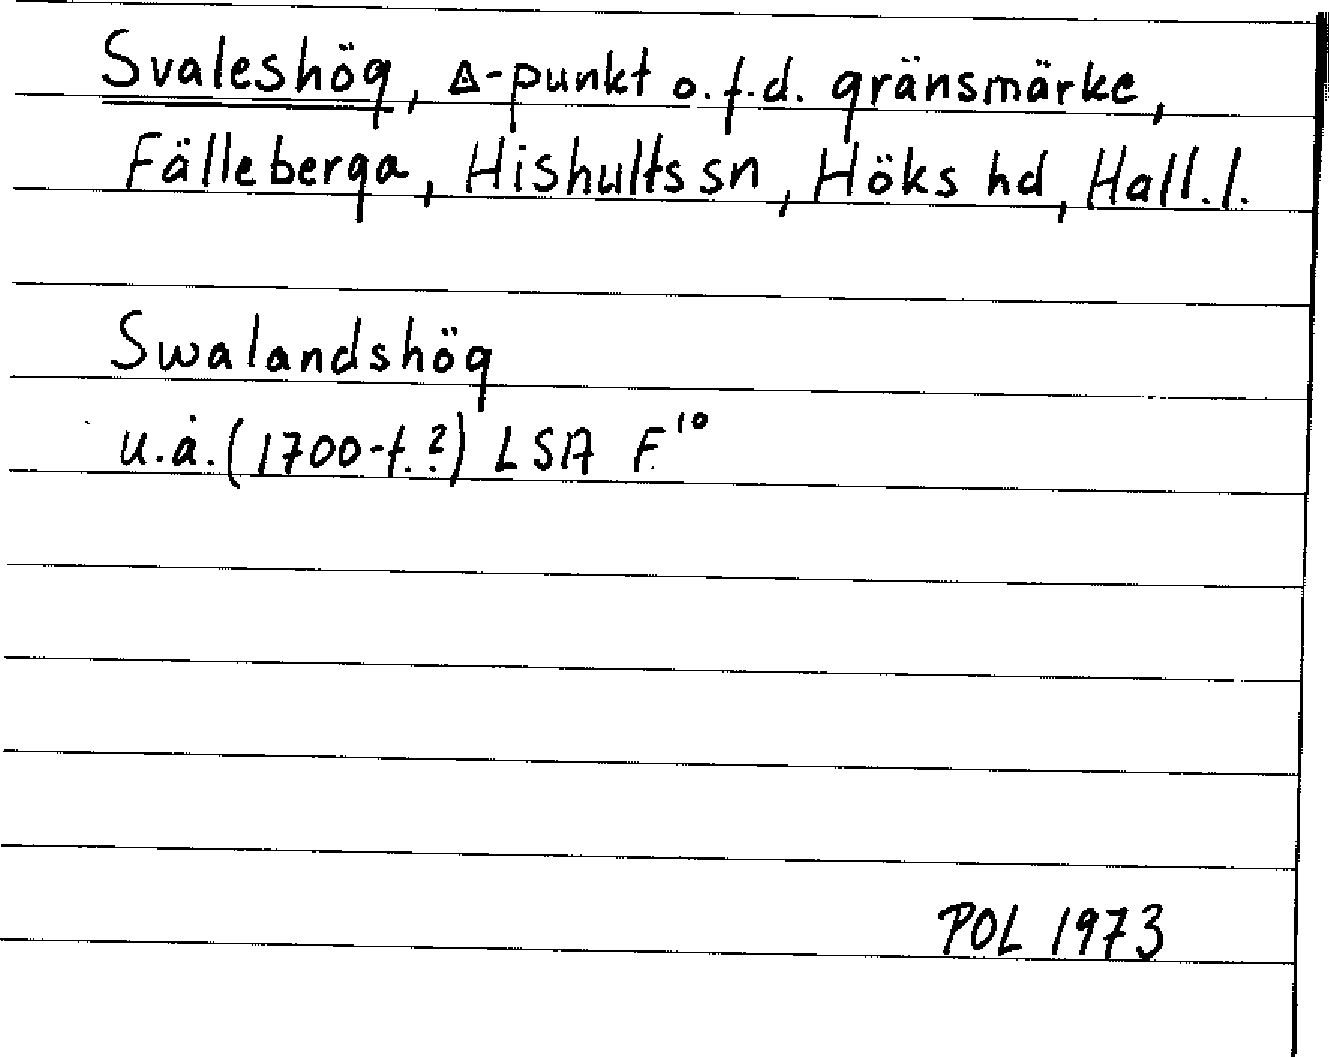 Svaleshög, △-punkt o. f. d. gränsmärke,
Fälleberga, Hishults sn, Höks hd, Hall. l.
Swalandshög
u. å. (1700-t. ?) LSA F 10
POL 1973